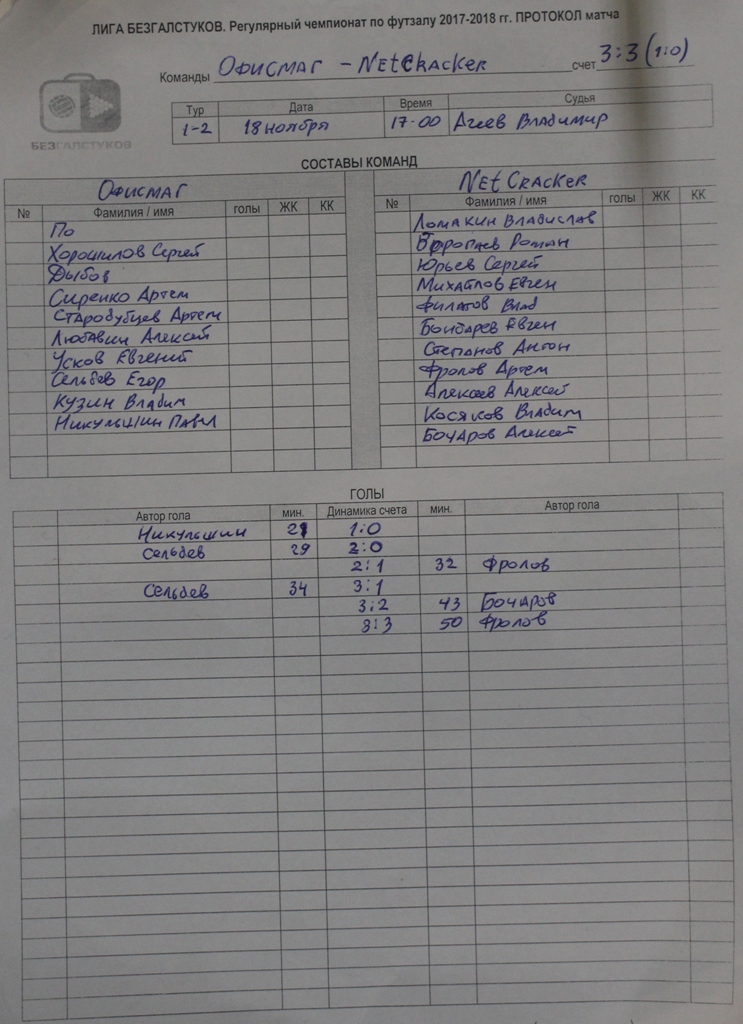 ЛИГА БЕЗГАЛСТУКОВ. Регулярный чемпионат по футзалу 2017-2018 гг. ПРОТОКОЛ матча
Команды Офисмаг - NetCracker счет 3:3 (1:0)
БЕЗГАЛСТУКОВ
Тур Дата Время Судья
1-2 18 ноября 17-00 Агеев Владимир
СОСТАВЫ КОМАНД
Офисмаг NetCracker
№ Фамилия / имя голы ЖК КК № Фамилия / имя голы ЖК КК
По Ломакин Владислав
Хорошилов Сергей Воропаев Роман
Дыбов Юрьев Сергей
Сиренко Артем Михайлов Евген
Стародубцев Артем Филатов Влад
Любавин Алексей Бондарев Евген
Усков Евгений Степанов Антон
Сельдев Егор Фролов Артем
Кузин Владим Алексеев Алексей
Никульшин Павел Косяков Владим
Бочаров Алексей
ГОЛЫ
Автор гола мин. Динамика счета мин. Автор гола
Никульшин 21 1:0
Сельдев 29 2:0
2:1 32 Фролов
Сельдев 34 3:1
3:2 43 Бочаров
3:3 50 Фролов